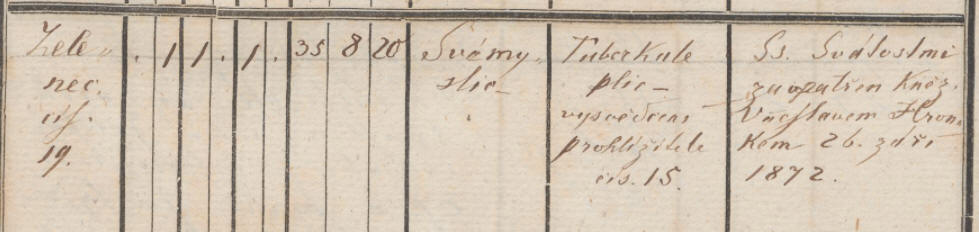 Zele- . 1 1 . 1 . 35 8 20 Svémy- Tuberkule Ss. Svátostmi
nec. slic- plic- zaopatřen Kněz.
čís. vysvědčení Václavem Hron-
19. prohlížitele kem 26. září
čís. 15. 1872.